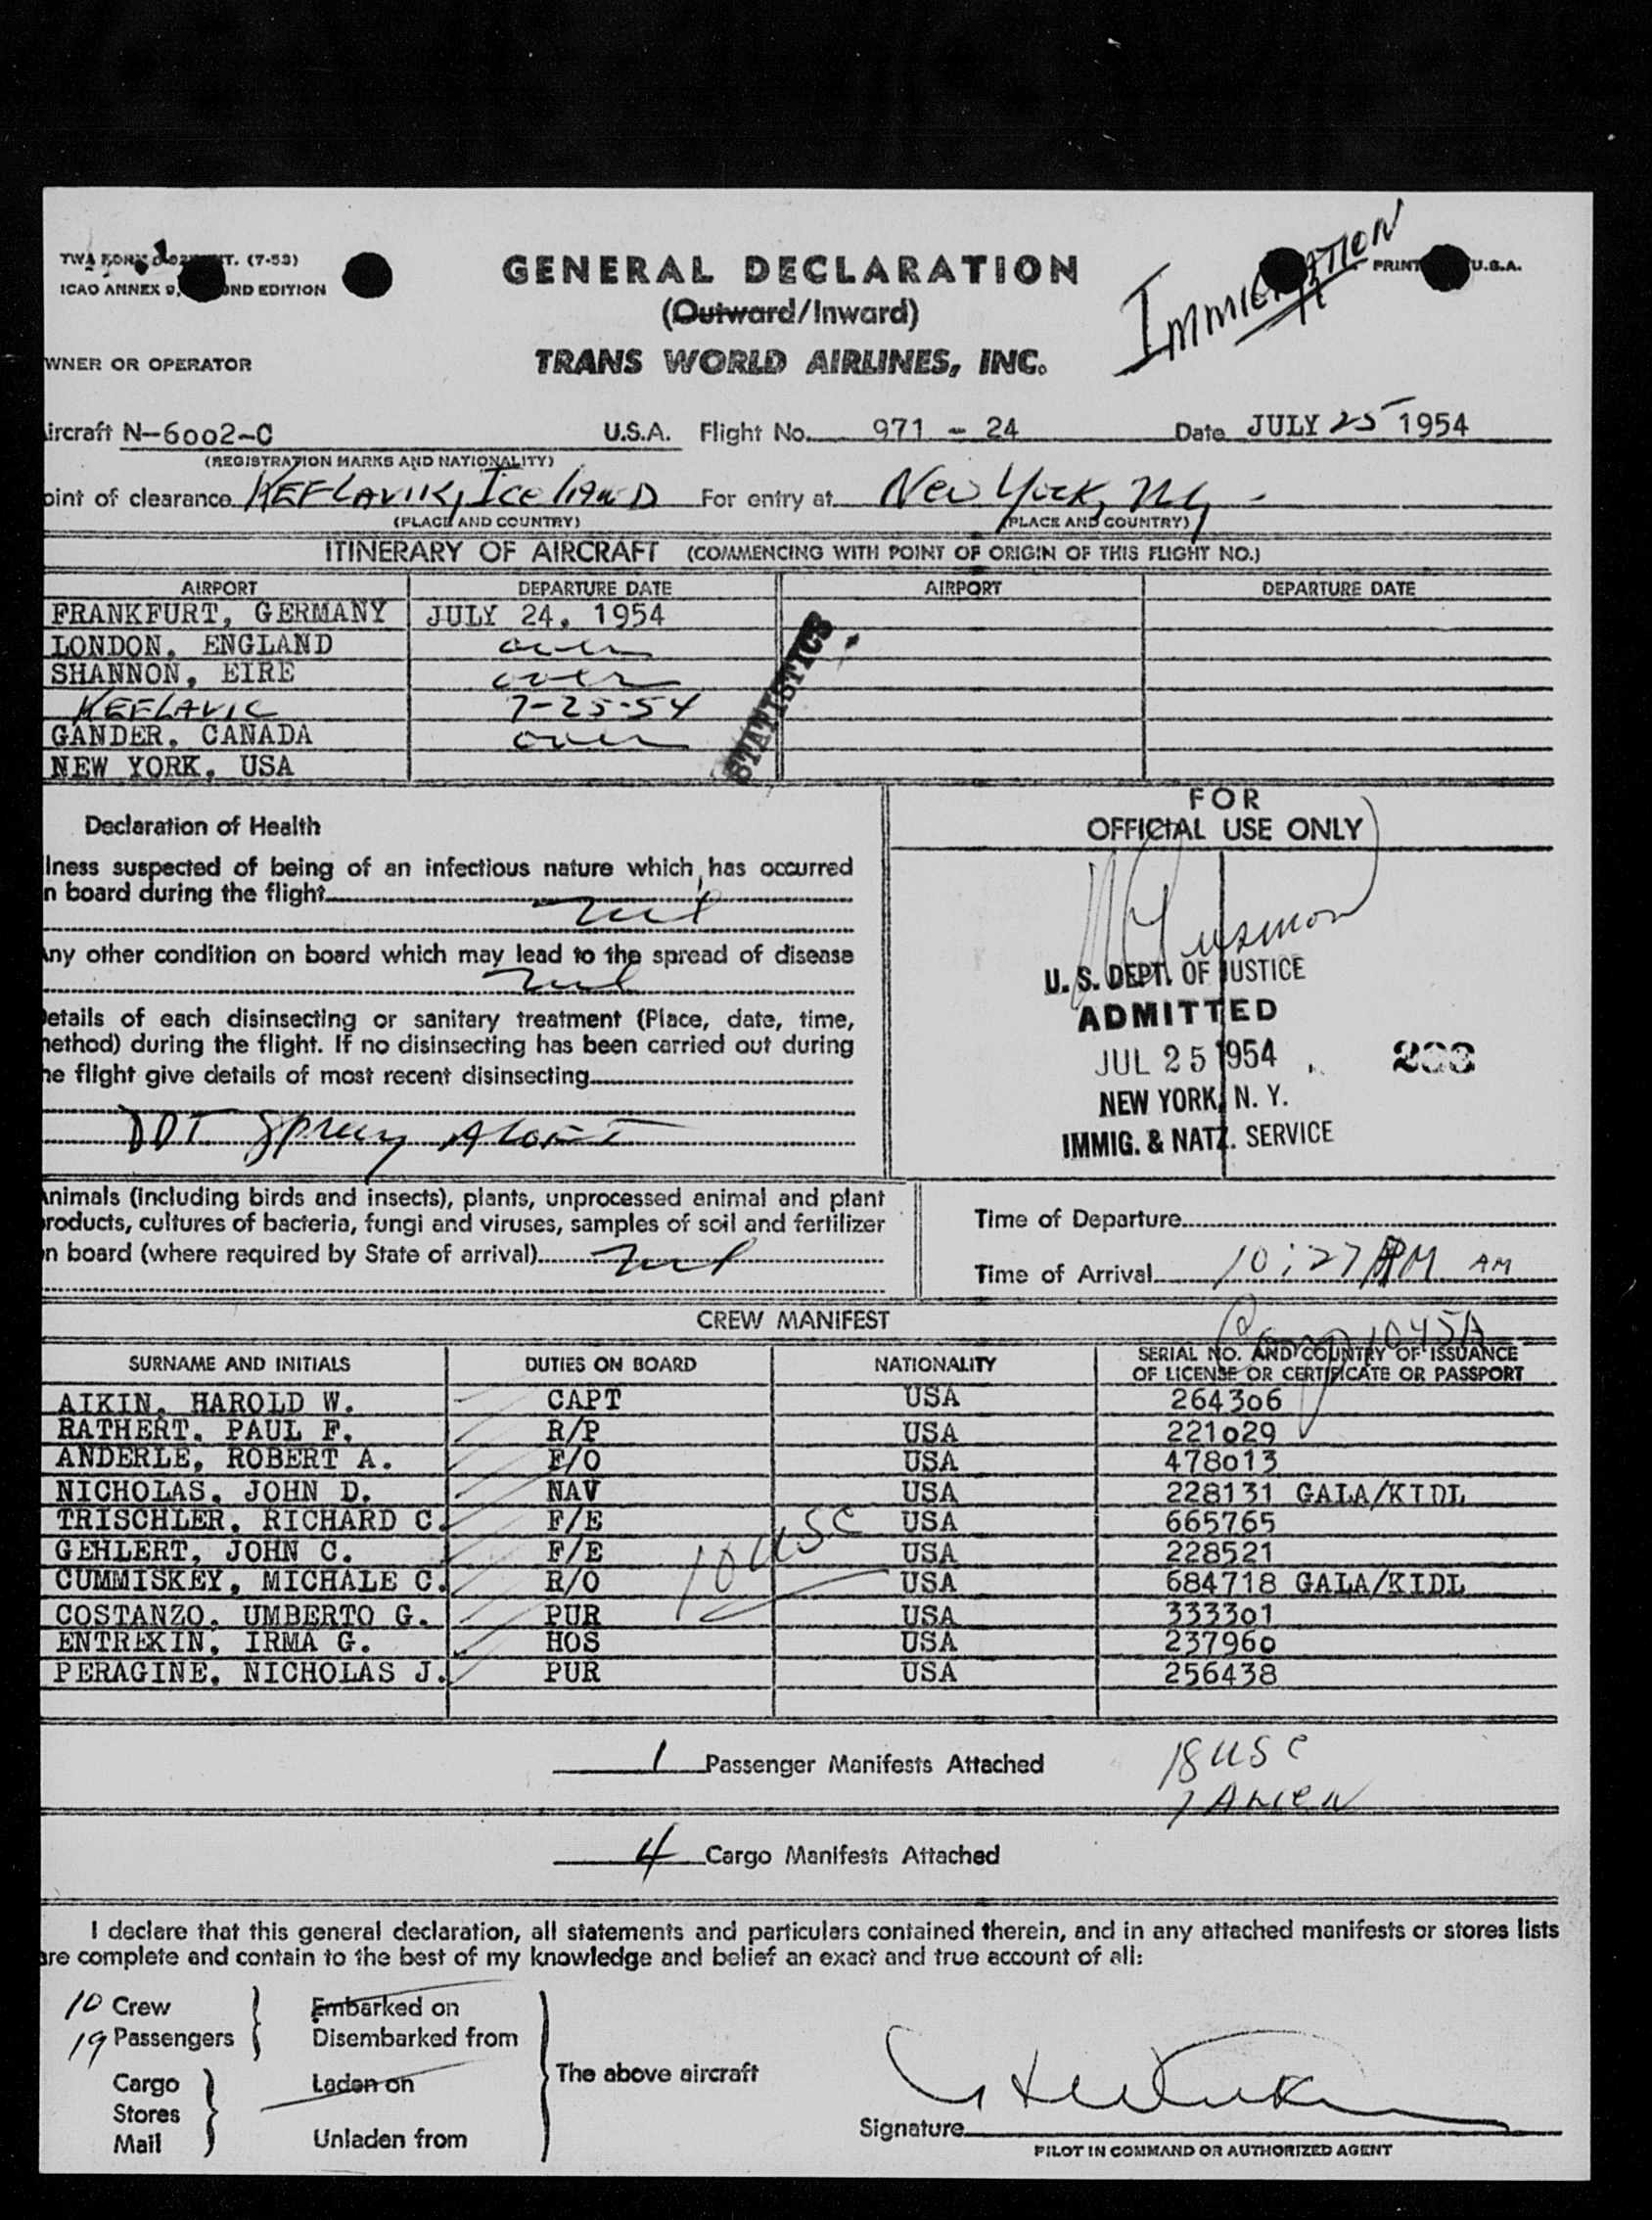 TWA FORM T. (7-53)
ICAO ANNEX 9, ND EDITION
GENERAL DECLARATION
(Outward/Inward)
IMMIGRATION
PRINT U.S.A.
WNER OR OPERATOR
TRANS WORLD AIRLINES, INC.
ircraft N-6002-C U.S.A. Flight No. 971 - 24 Date JULY 25 1954
(REGISTRATION MARKS AND NATIONALITY)
oint of clearance KEFLAVIK, ICELAND For entry at New York, NY
(PLACE AND COUNTRY) (PLACE AND COUNTRY)
ITINERARY OF AIRCRAFT (COMMENCING WITH POINT OF ORIGIN OF THIS FLIGHT NO.)
AIRPORT DEPARTURE DATE AIRPORT DEPARTURE DATE
FRANKFURT, GERMANY JULY 24, 1954
LONDON, ENGLAND over
SHANNON, EIRE over
KEFLAVIC 7-25-54
GANDER, CANADA over
NEW YORK, USA
STATISTICS
Declaration of Health
lness suspected of being of an infectious nature which has occurred
n board during the flight
nil
ny other condition on board which may lead to the spread of disease
nil
etails of each disinsecting or sanitary treatment (Place, date, time,
ethod) during the flight. If no disinsecting has been carried out during
he flight give details of most recent disinsecting
DDT Spray Aloft
FOR
OFFICIAL USE ONLY
U. S. DEPT. OF JUSTICE
ADMITTED
JUL 25 1954
NEW YORK, N. Y.
IMMIG. & NATZ. SERVICE
nimals (including birds and insects), plants, unprocessed animal and plant
roducts, cultures of bacteria, fungi and viruses, samples of soil and fertilizer
n board (where required by State of arrival) nil
Time of Departure
Time of Arrival 10:27 AM
CREW MANIFEST
1045A
SURNAME AND INITIALS DUTIES ON BOARD NATIONALITY SERIAL NO. AND COUNTRY OF ISSUANCE
OF LICENSE OR CERTIFICATE OR PASSPORT
AIKIN, HAROLD W. CAPT USA 264306
RATHERT, PAUL F. R/P USA 221029
ANDERLE, ROBERT A. F/O USA 478013
NICHOLAS, JOHN D. NAV USA 228131 GALA/KIDL
TRISCHLER, RICHARD C. F/E USA 665765
GEHLERT, JOHN C. F/E USA 228521
CUMMISKEY, MICHALE C. R/O USA 684718 GALA/KIDL
COSTANZO, UMBERTO G. PUR USA 333301
ENTREKIN, IRMA G. HOS USA 237960
PERAGINE, NICHOLAS J. PUR USA 256438
10 USC
1 Passenger Manifests Attached
18 USC
1 ALIEN
4 Cargo Manifests Attached
I declare that this general declaration, all statements and particulars contained therein, and in any attached manifests or stores lists
are complete and contain to the best of my knowledge and belief an exact and true account of all:
10 Crew
19 Passengers
Embarked on
Disembarked from
Cargo
Stores
Mail
Laden on
Unladen from
The above aircraft
Signature
PILOT IN COMMAND OR AUTHORIZED AGENT